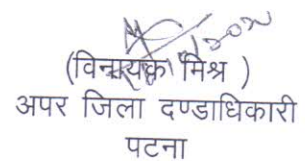 (विनायक मिश्र )
अपर जिला दण्डाधिकारी
पटना